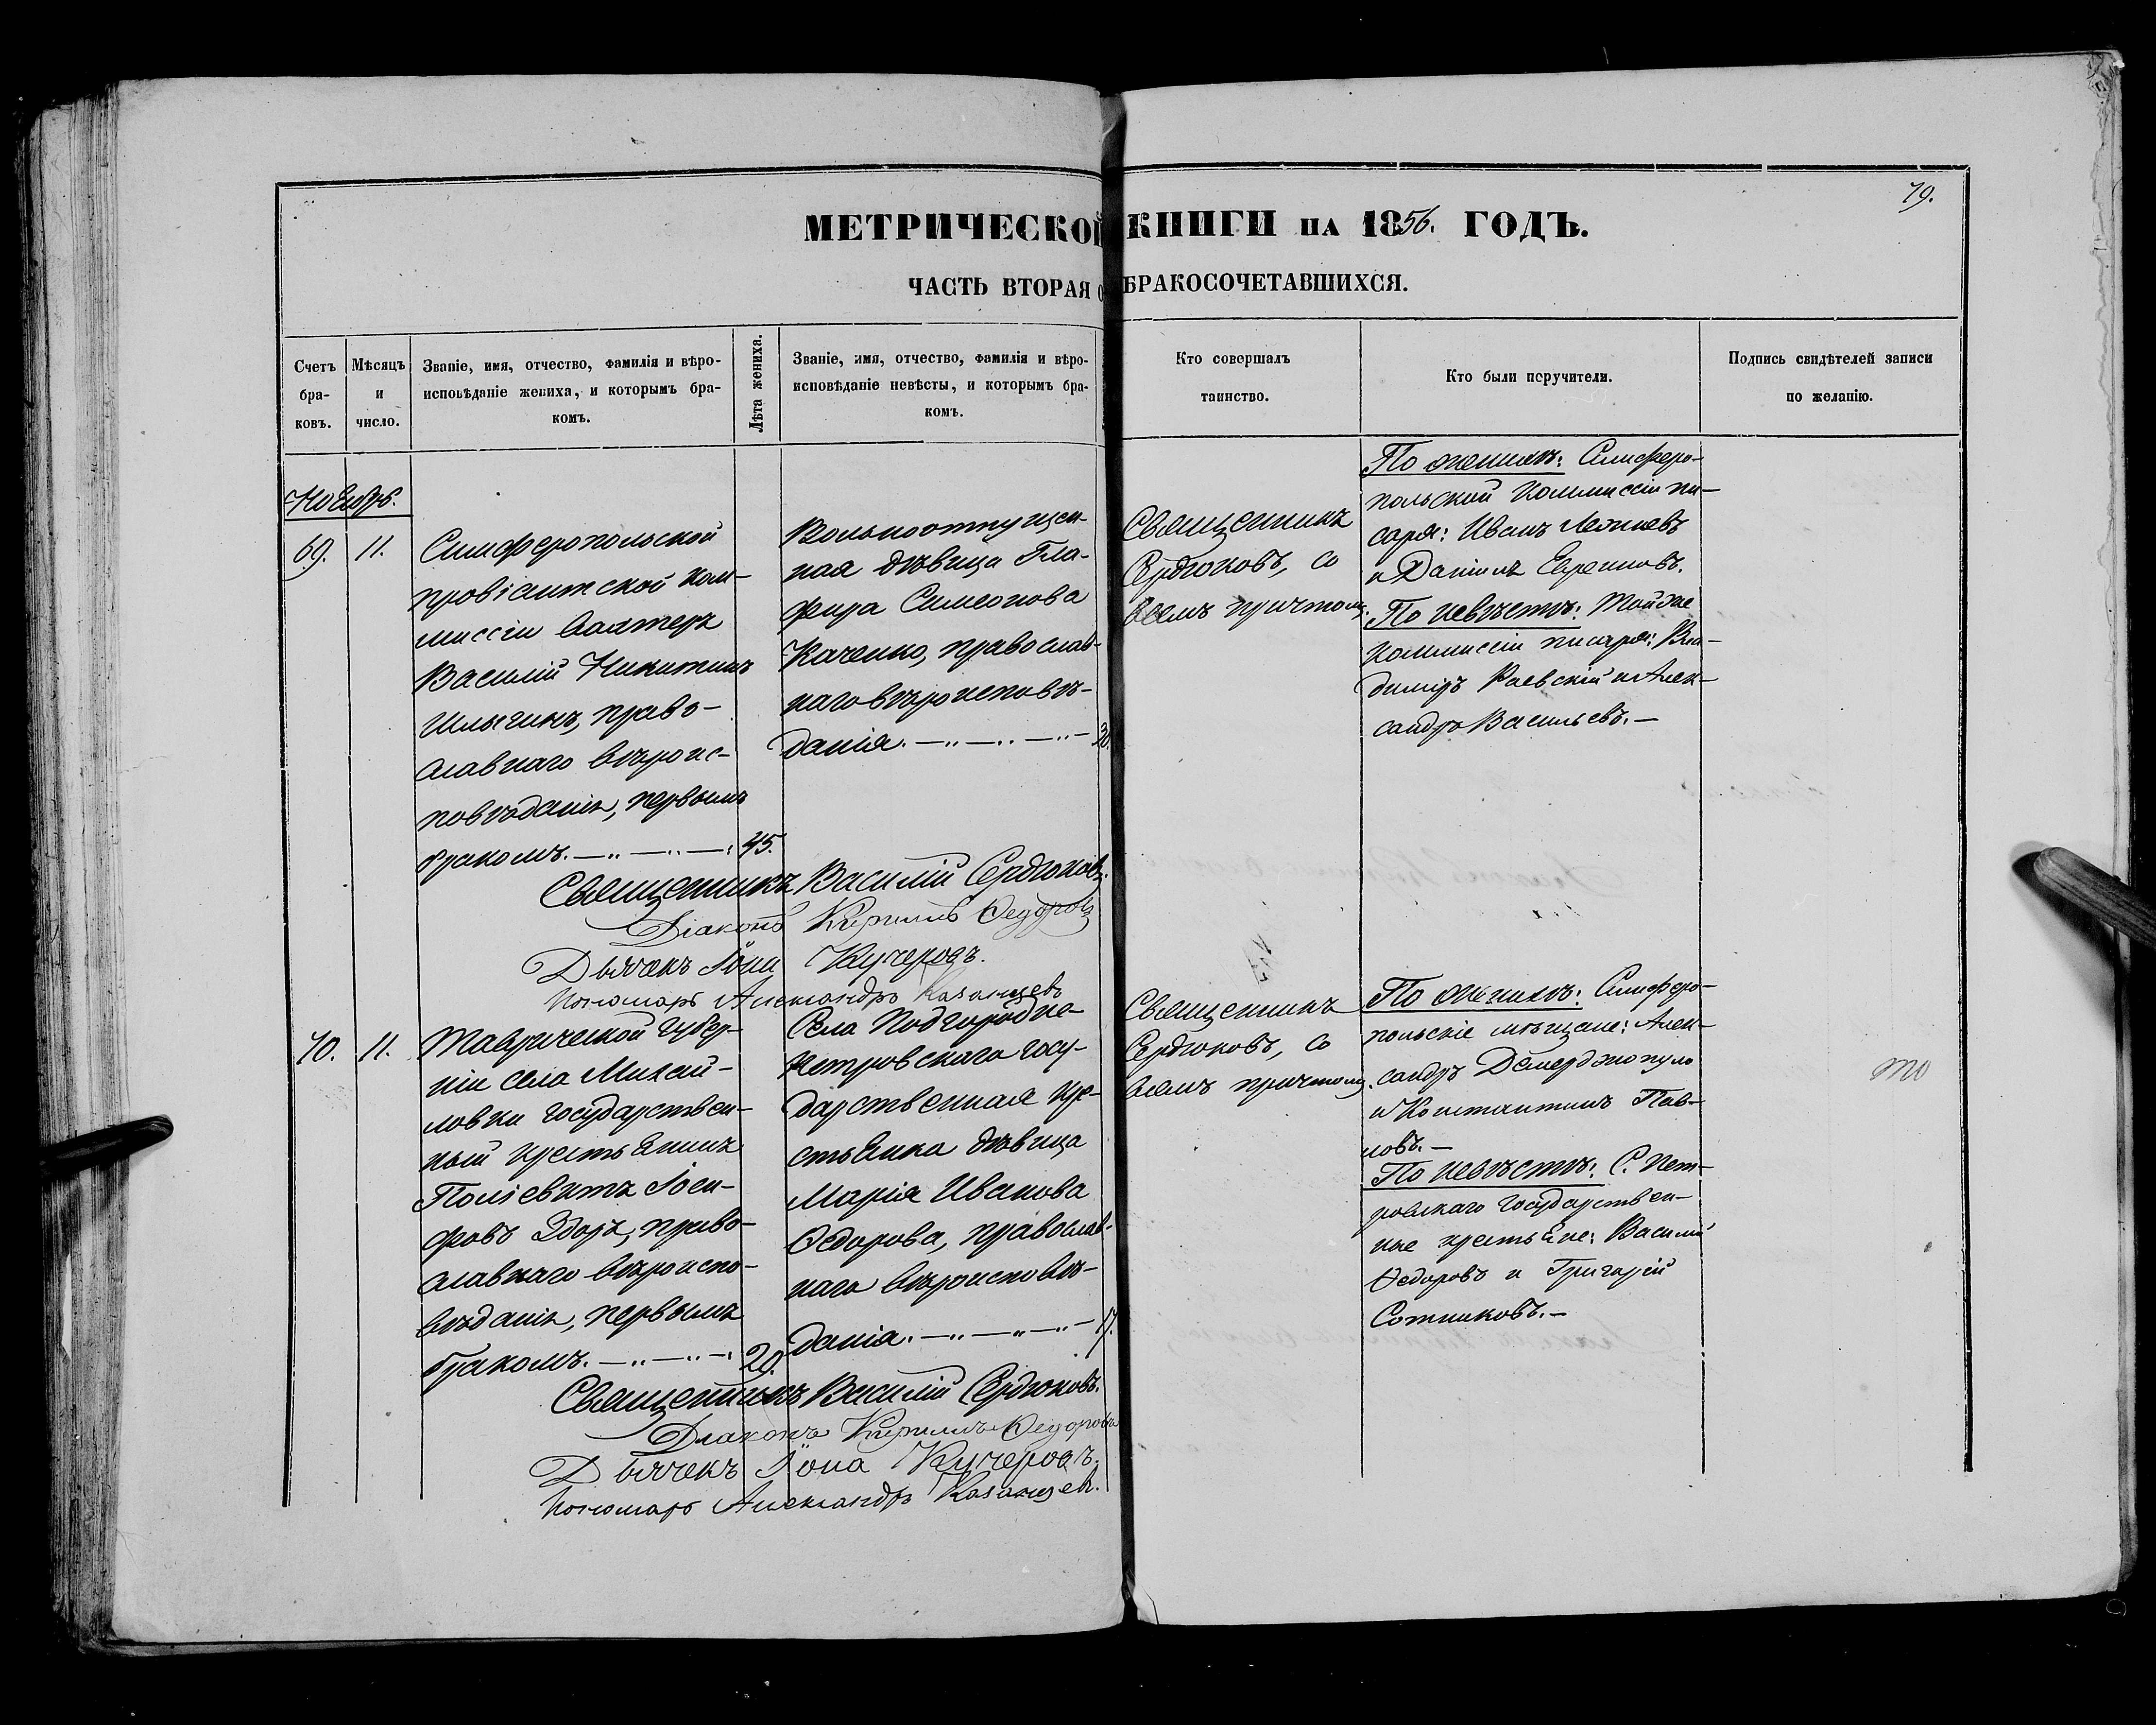 79.
МЕТРИЧЕСКОЙ КНИГИ НА 1856. ГОДЪ.
ЧАСТЬ ВТОРАЯ О БРАКОСОЧЕТАВШИХСЯ.
Счетъ
бра-
ковъ.
Мѣсяцъ
и
число.
Званіе, имя, отчество, фамилія и вѣро-
исповѣданіе жениха, и которымъ бра-
комъ.
Лѣта жениха.
Званіе, имя, отчество, фамилія и вѣро-
исповѣданіе невѣсты, и которымъ бра-
комъ.
Кто совершалъ
таинство.
Кто были поручители.
Подпись свидѣтелей записи
по желанію.
Ноябрь.
69.
11.
Симферопольской
провіантской ком-
миссіи
Василій Никитинъ
право-
славнаго вѣроис-
повѣданія, первымъ
бракомъ. 45.
Вольноотпущен-
ная дѣвица Гла-
фира Симеонова
Каченко, православ-
наго вѣроисповѣ-
данія. 30.
Священникъ
Сердюковъ, со
всемъ причтомъ.
По женихѣ: Симферо-
польской Коммиссіи пи-
саря: Иванъ
и Даніилъ Евреиновъ.
По невѣстѣ: Той же
Коммиссіи писаря: Вла-
димиръ Раевскій и Алек-
сандръ Васильевъ.
Священникъ Василій Сердюковъ.
Діаконъ Кириллъ Ѳедоровъ
Дьячекъ Іона Кучеровъ.
Пономарь Александръ Казанцевъ
70.
11.
Таврической Губер-
ніи села Михай-
ловки государствен-
ный крестьянинъ
Поліевктъ Іоси-
фовъ право-
славнаго вѣроиспо-
вѣданія, первымъ
бракомъ. 20.
Села Подгородне-
Петровскаго госу-
дарственная кре-
стьянка дѣвица
Марія Иванова
Ѳедорова, православ-
наго вѣроисповѣ-
данія. 17.
Священникъ
Сердюковъ, со
всемъ причтомъ.
По женихѣ: Симферо-
польскіе мѣщане: Алек-
сандръ Демерджопуло
и Константинъ Пав-
ловъ.
По невѣстѣ: С. Пет-
ровскаго государствен-
ные крестьяне: Василій
Ѳедоровъ и Григорій
Сотниковъ.
Священникъ Василій Сердюковъ.
Діаконъ Кириллъ Ѳедоровъ
Дьячекъ Іона Кучеровъ.
Пономарь Александръ Казанцевъ.